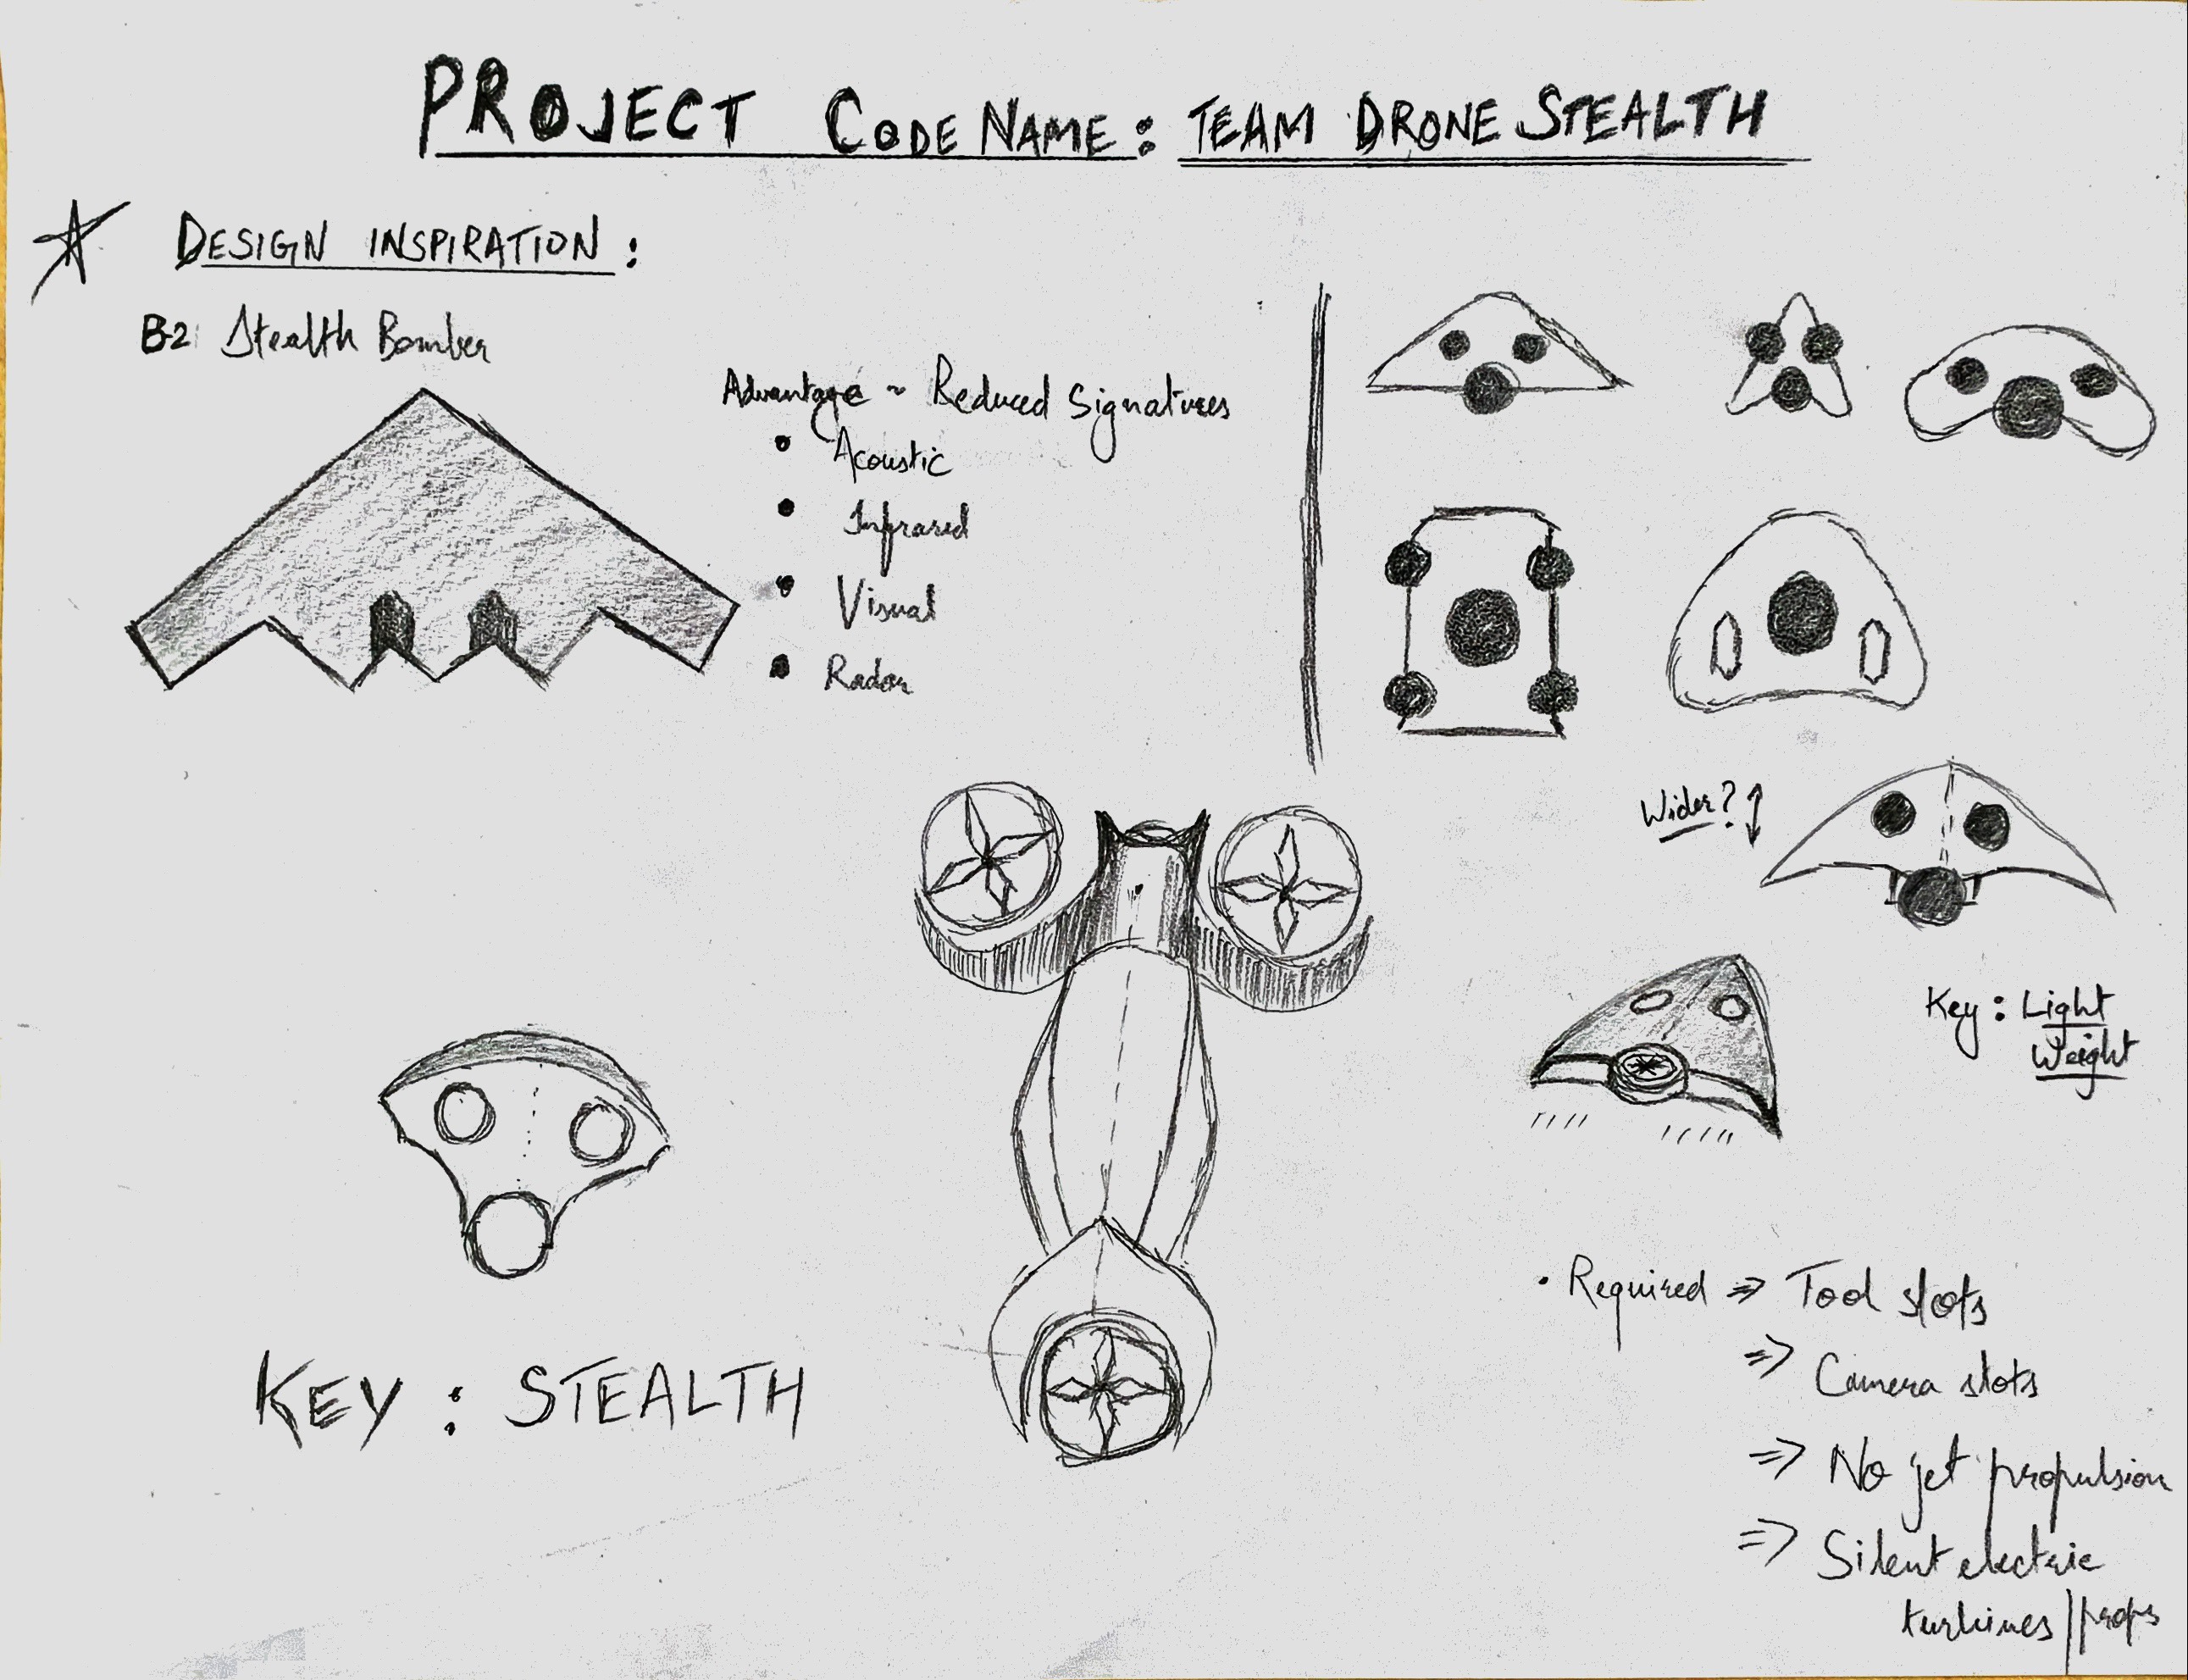 PROJECT CODE NAME: TEAM DRONE STEALTH
DESIGN INSPIRATION:
B2 Stealth Bomber
Advantage ~ Reduced Signatures
• Acoustic
• Infrared
• Visual
• Radar
Wider?
Key: Light
Weight
KEY: STEALTH
• Required ⇒ Tool slots
⇒ Camera slots
⇒ No jet propulsion
⇒ Silent electric
turbines/props